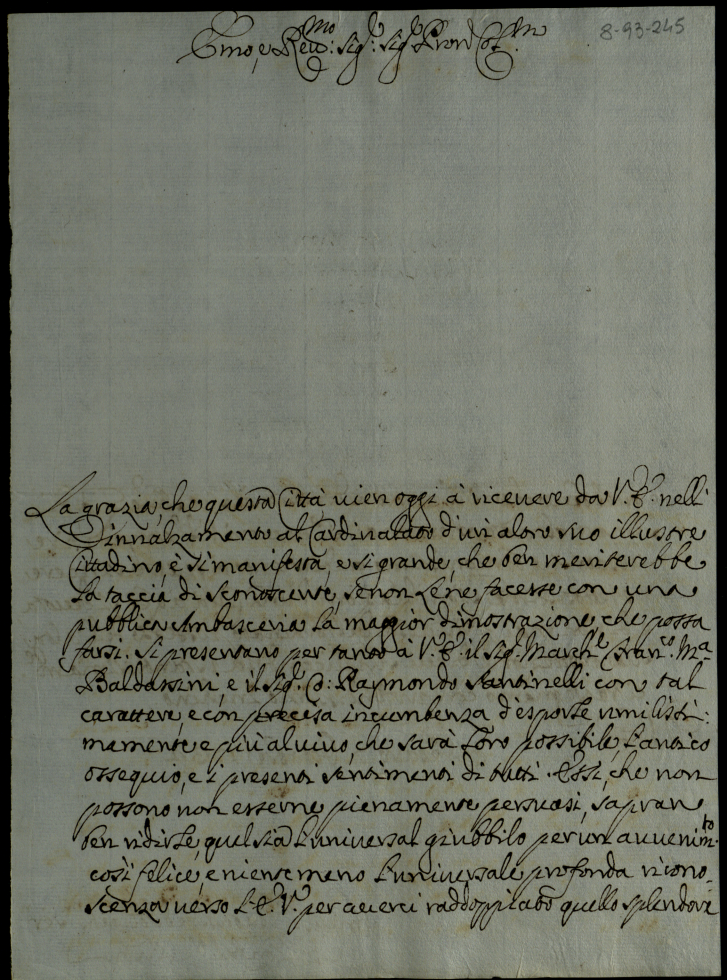 8-93-245
Emo, e Reu.mo: Sig.r: Sig.r Pron Col.m
La grazia, che questa Città vien oggi à ricevere da V.E. nell'
innalzamento al Cardinalato d'un altro suo illustre
Cittadino, è si manifesta, e si grande, che ben meriterebbe
la taccia di sconoscente, se non le ne facesse con una
pubblica Ambasceria la maggior dimostrazione, che possa
farsi. Si presentano per tanto à V.E. il Sig.r March.e Fran.co M.a
Baldassini, e il Sig.r D: Raymondo Santinelli con tal
carattere, e con precisa incumbenza d'esporle umilissi:
mamente e più al vivo, che sarà loro possibile, l'antico
ossequio, e i presenti sentimenti di tutti. Essi, che non
possono non esserne pienamente persuasi, sapran
ben ridirle, qual sia l'universal giubbilo per un avvenim.to
così felice, e niente meno l'universale profonda ricono-
scenza verso l'E.V. per averci raddoppiato quello splendore